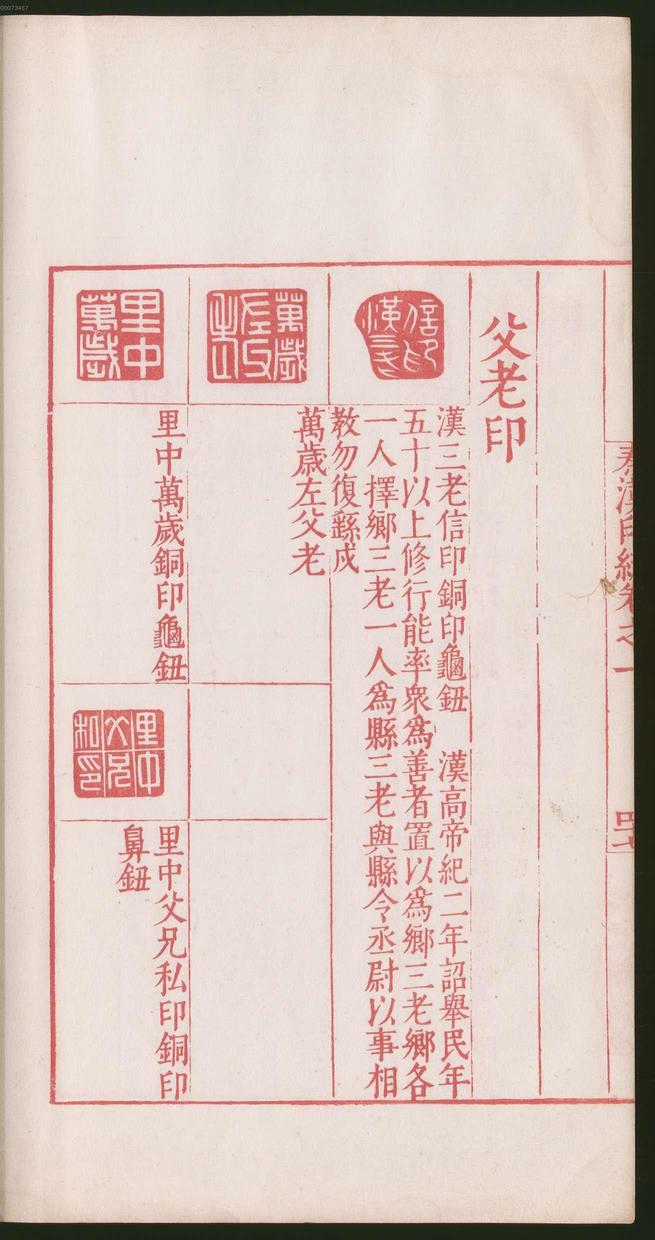 00073467
秦漢印統卷之一
四七
父老印
漢三老信印銅印龜鈕　漢高帝紀二年詔舉民年
五十以上修行能率衆爲善者置以爲鄉三老鄉各
一人擇鄉三老一人爲縣三老與縣令丞尉以事相
教勿復繇戍
萬歲左父老
里中萬歲銅印龜鈕
里中父兄私印銅印
鼻鈕
信印
漢三老
萬歲
左父
老
里中
萬歲
里中
父兄
私印